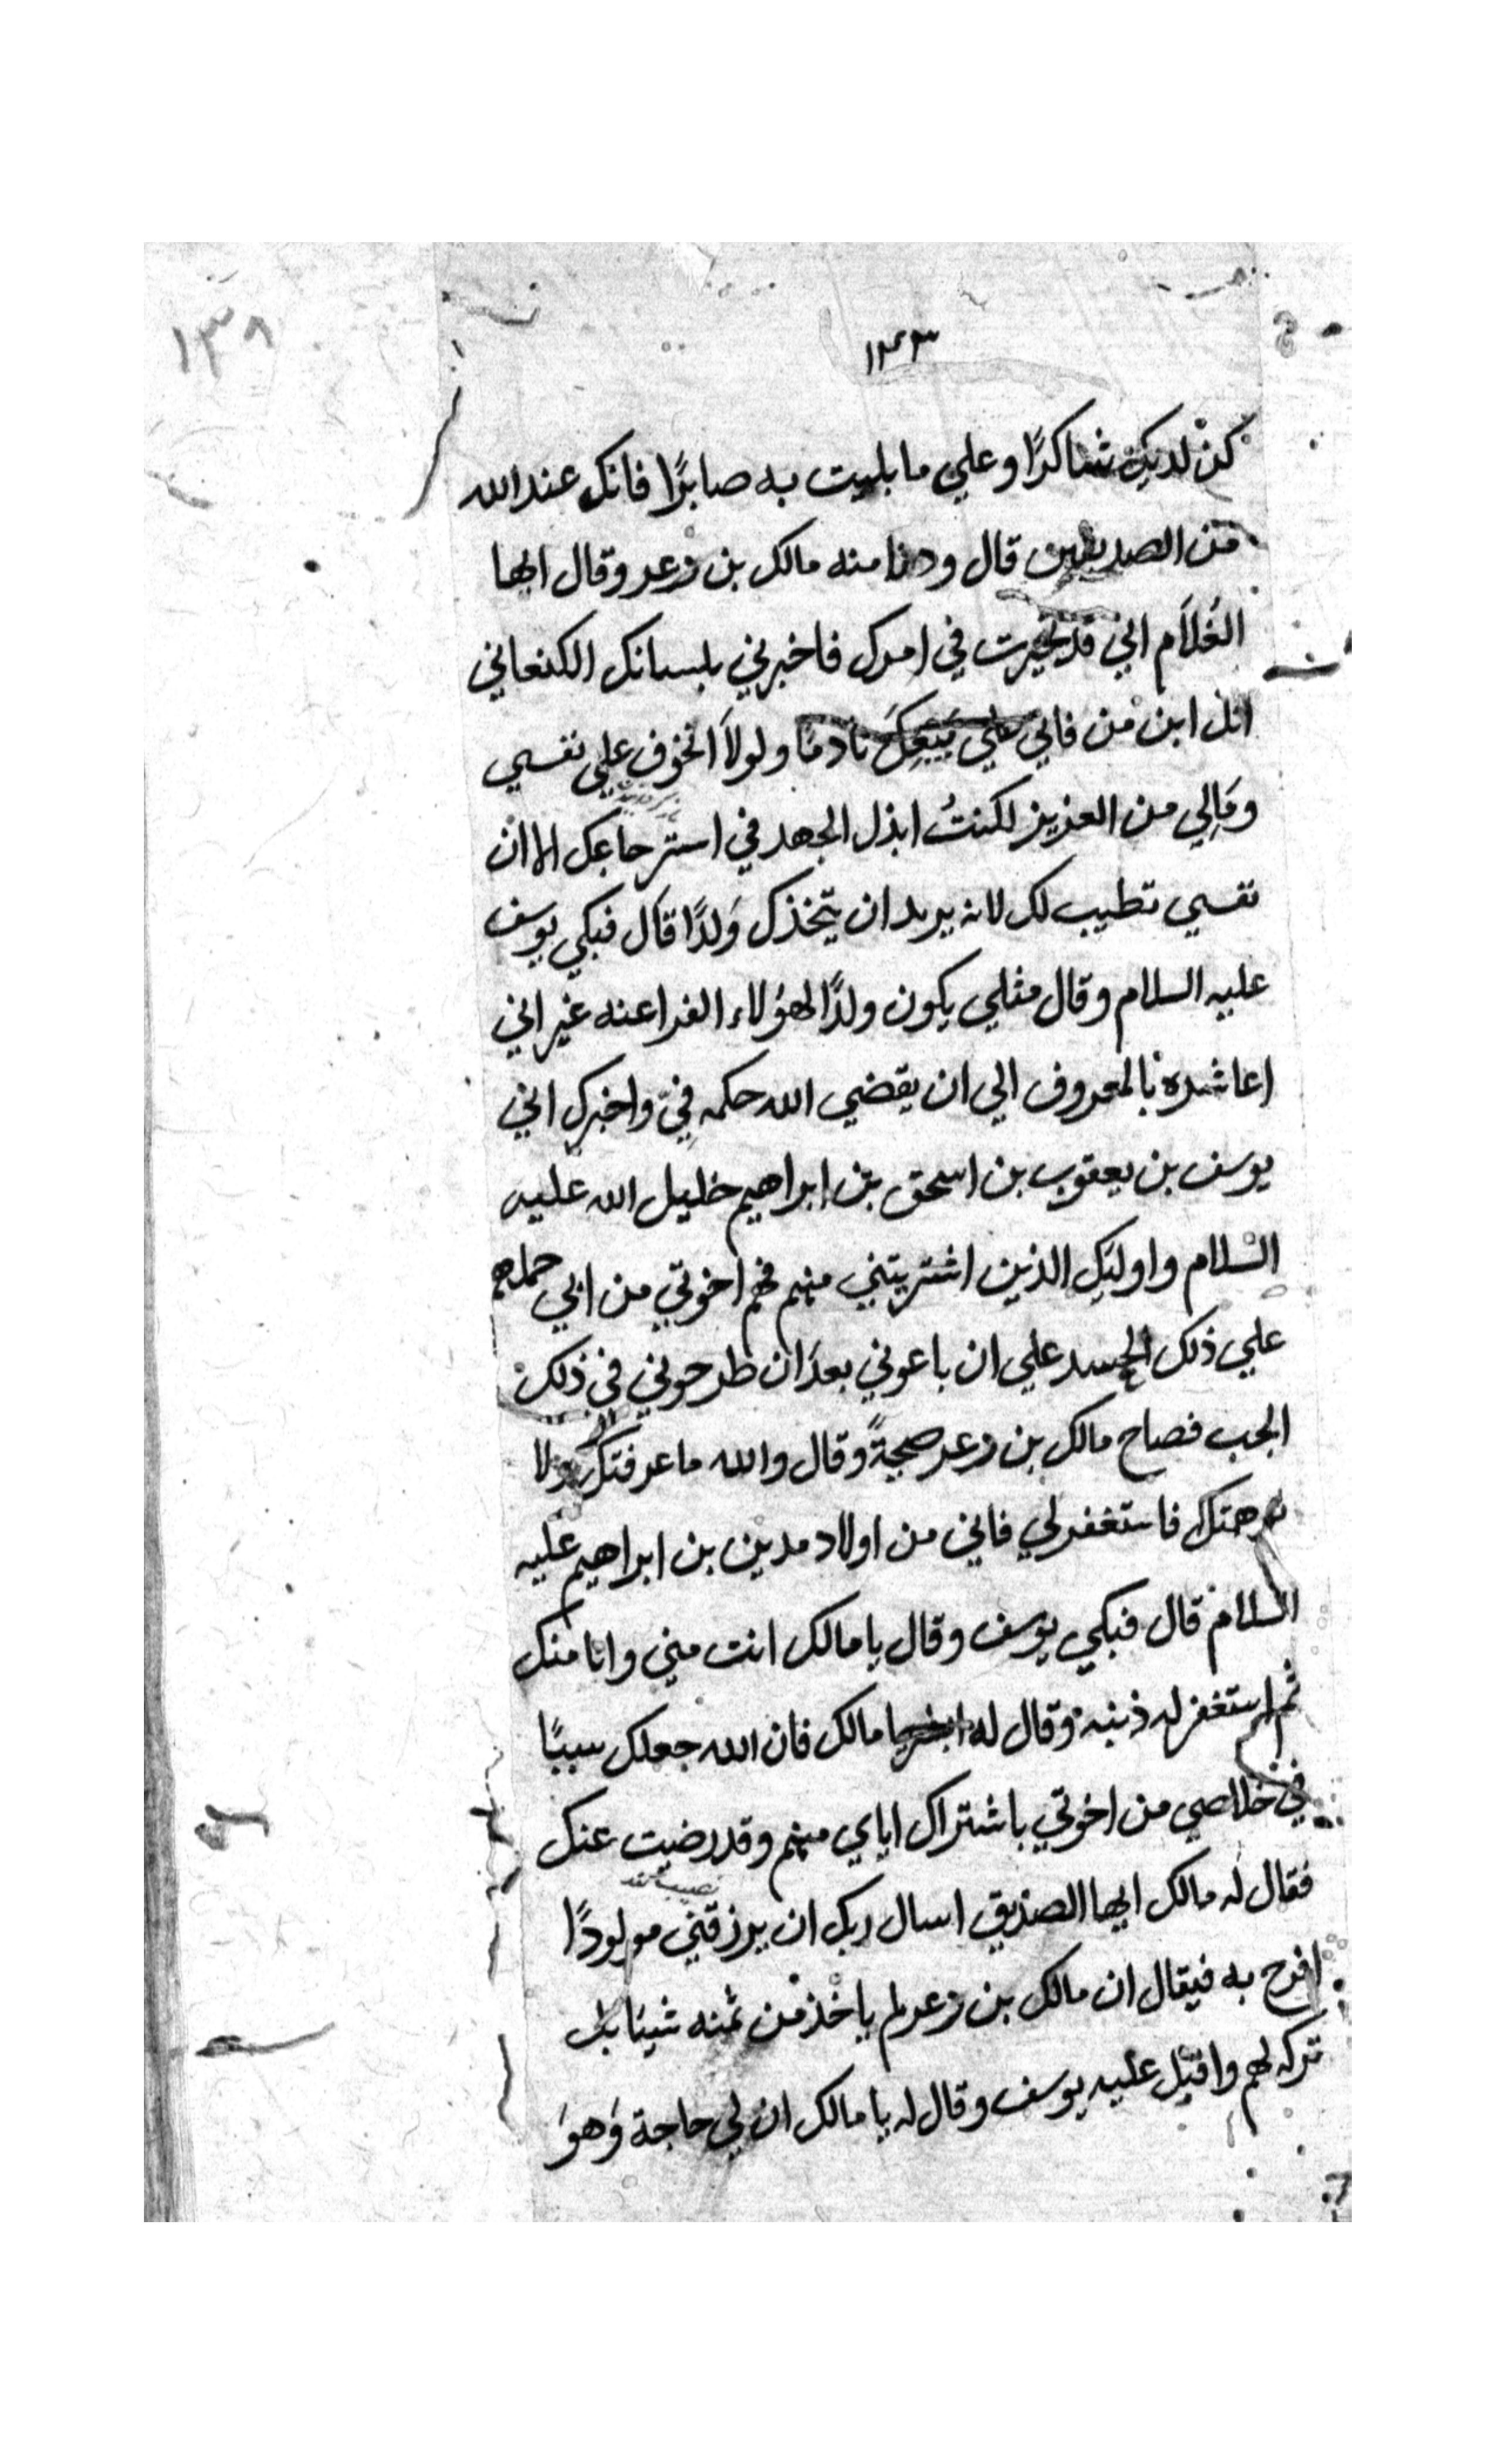 ١٣٨
١٤٣
كن لديك شاكرًا وعلي ما بليت به صابرًا فانك عند الله
من الصديقين قال ودنا منه مالك بن زعر وقال ايها
الغُلَام اني قد تحيرت في امرك فاخبرني بلسانك الكنعاني
ابن من فاني علي بَيْعِكَ نادمًا ولولَا الخوف علي نفسي
ومَالِي من العزيز لكنتُ ابذل الجهد في استرجاعك الا ان
نفسي تطيب لك لانه يريد ان يتخذك وَلدًا قال فبكي يوسف
عليه السلام وقال مثلي يكون ولدًا لهؤلاء الفراعنه غير اني
اعاشره بالمعروف الي ان يقضي الله حكمه فيّ واخبرك اني
يوسف بن يعقوب بن اسحق بن ابراهيم خليل الله عليه
السلام واوليك الذين اشتريتني منهم فهم اخوتي من ابي حملهم
علي ذلك الحسد علي ان باعوني بعد ان طرحوني في ذلك
الجب فصاح مالك بن زعر صيحةً وقال والله ما عرفتك ولا
فاستغفر لي فاني من اولاد مدين بن ابراهيم عليه
السلام قال فبكي يوسف وقال يا مالك انت مني وانا منك
ثم استغفر له ذنبه وقال له مالك فان الله جعلك سببًا
في خلاصي من اخوتي باشتراك اياي منهم وقد رضيت عنك
فقال له مالك ايها الصديق اسال ربك ان يرزقني مولودًا
افرح به فيقال ان مالك بن زعر لم ياخذ من ثمنه شيئا بل
تركه لهم واقبل عليه يوسف وقال له يا مالك ان لي حاجة وَهوَ